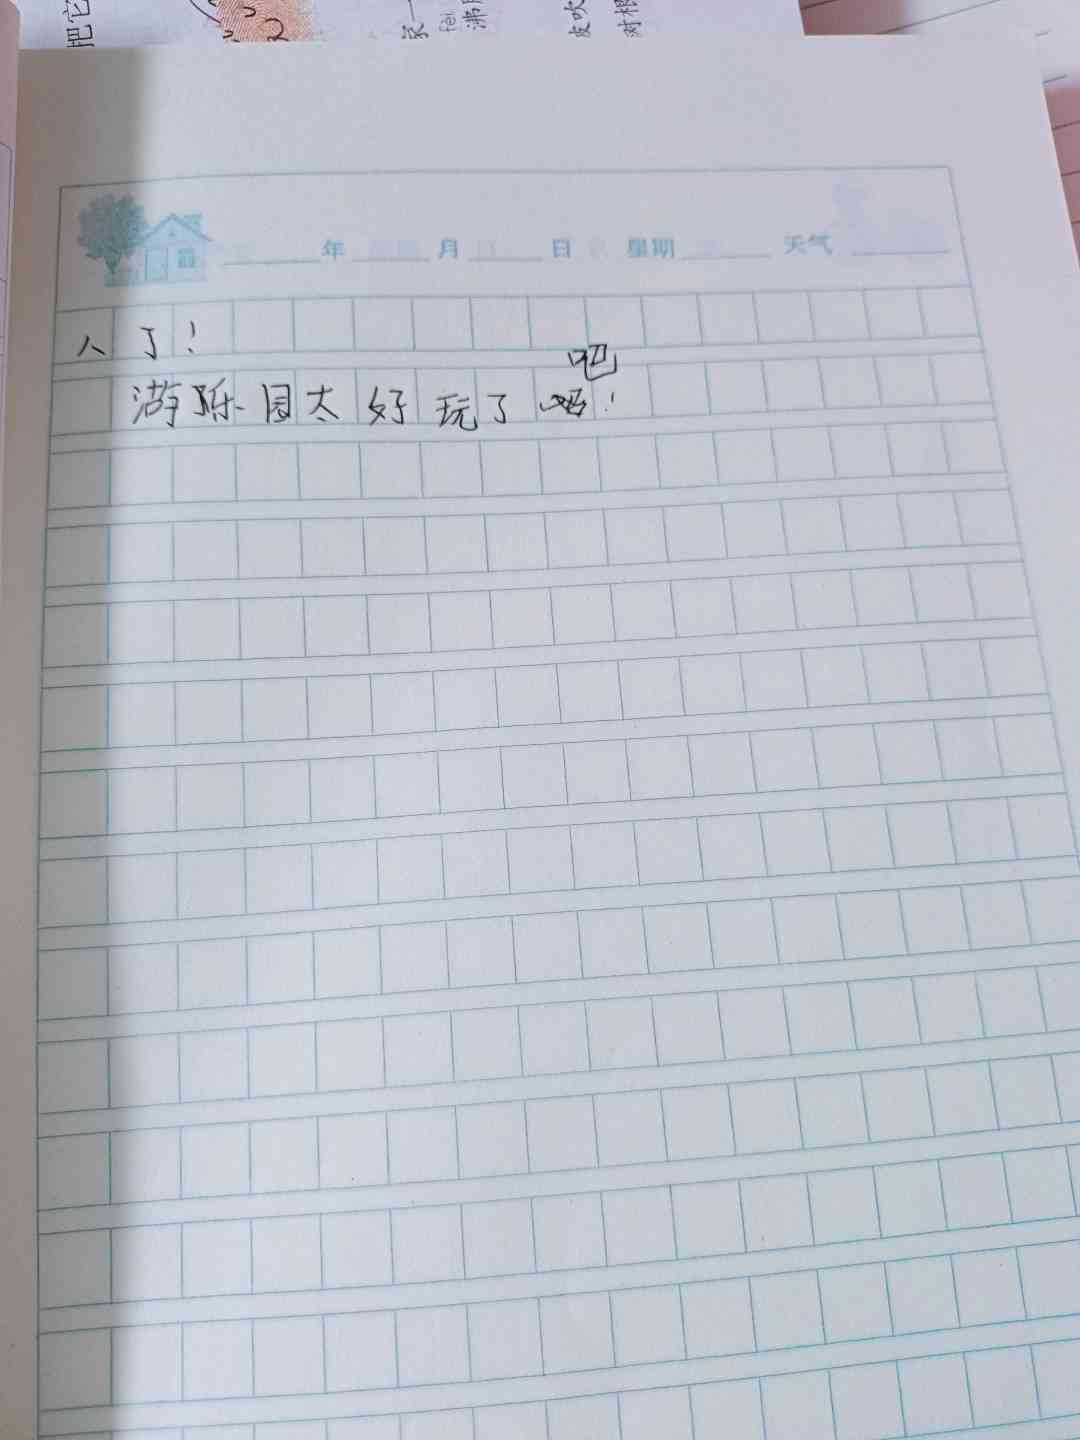 把它
家一
fèi
沸
皮吹
对根
年 月 日 星期 天气
人了！
游乐园太好玩了吧！